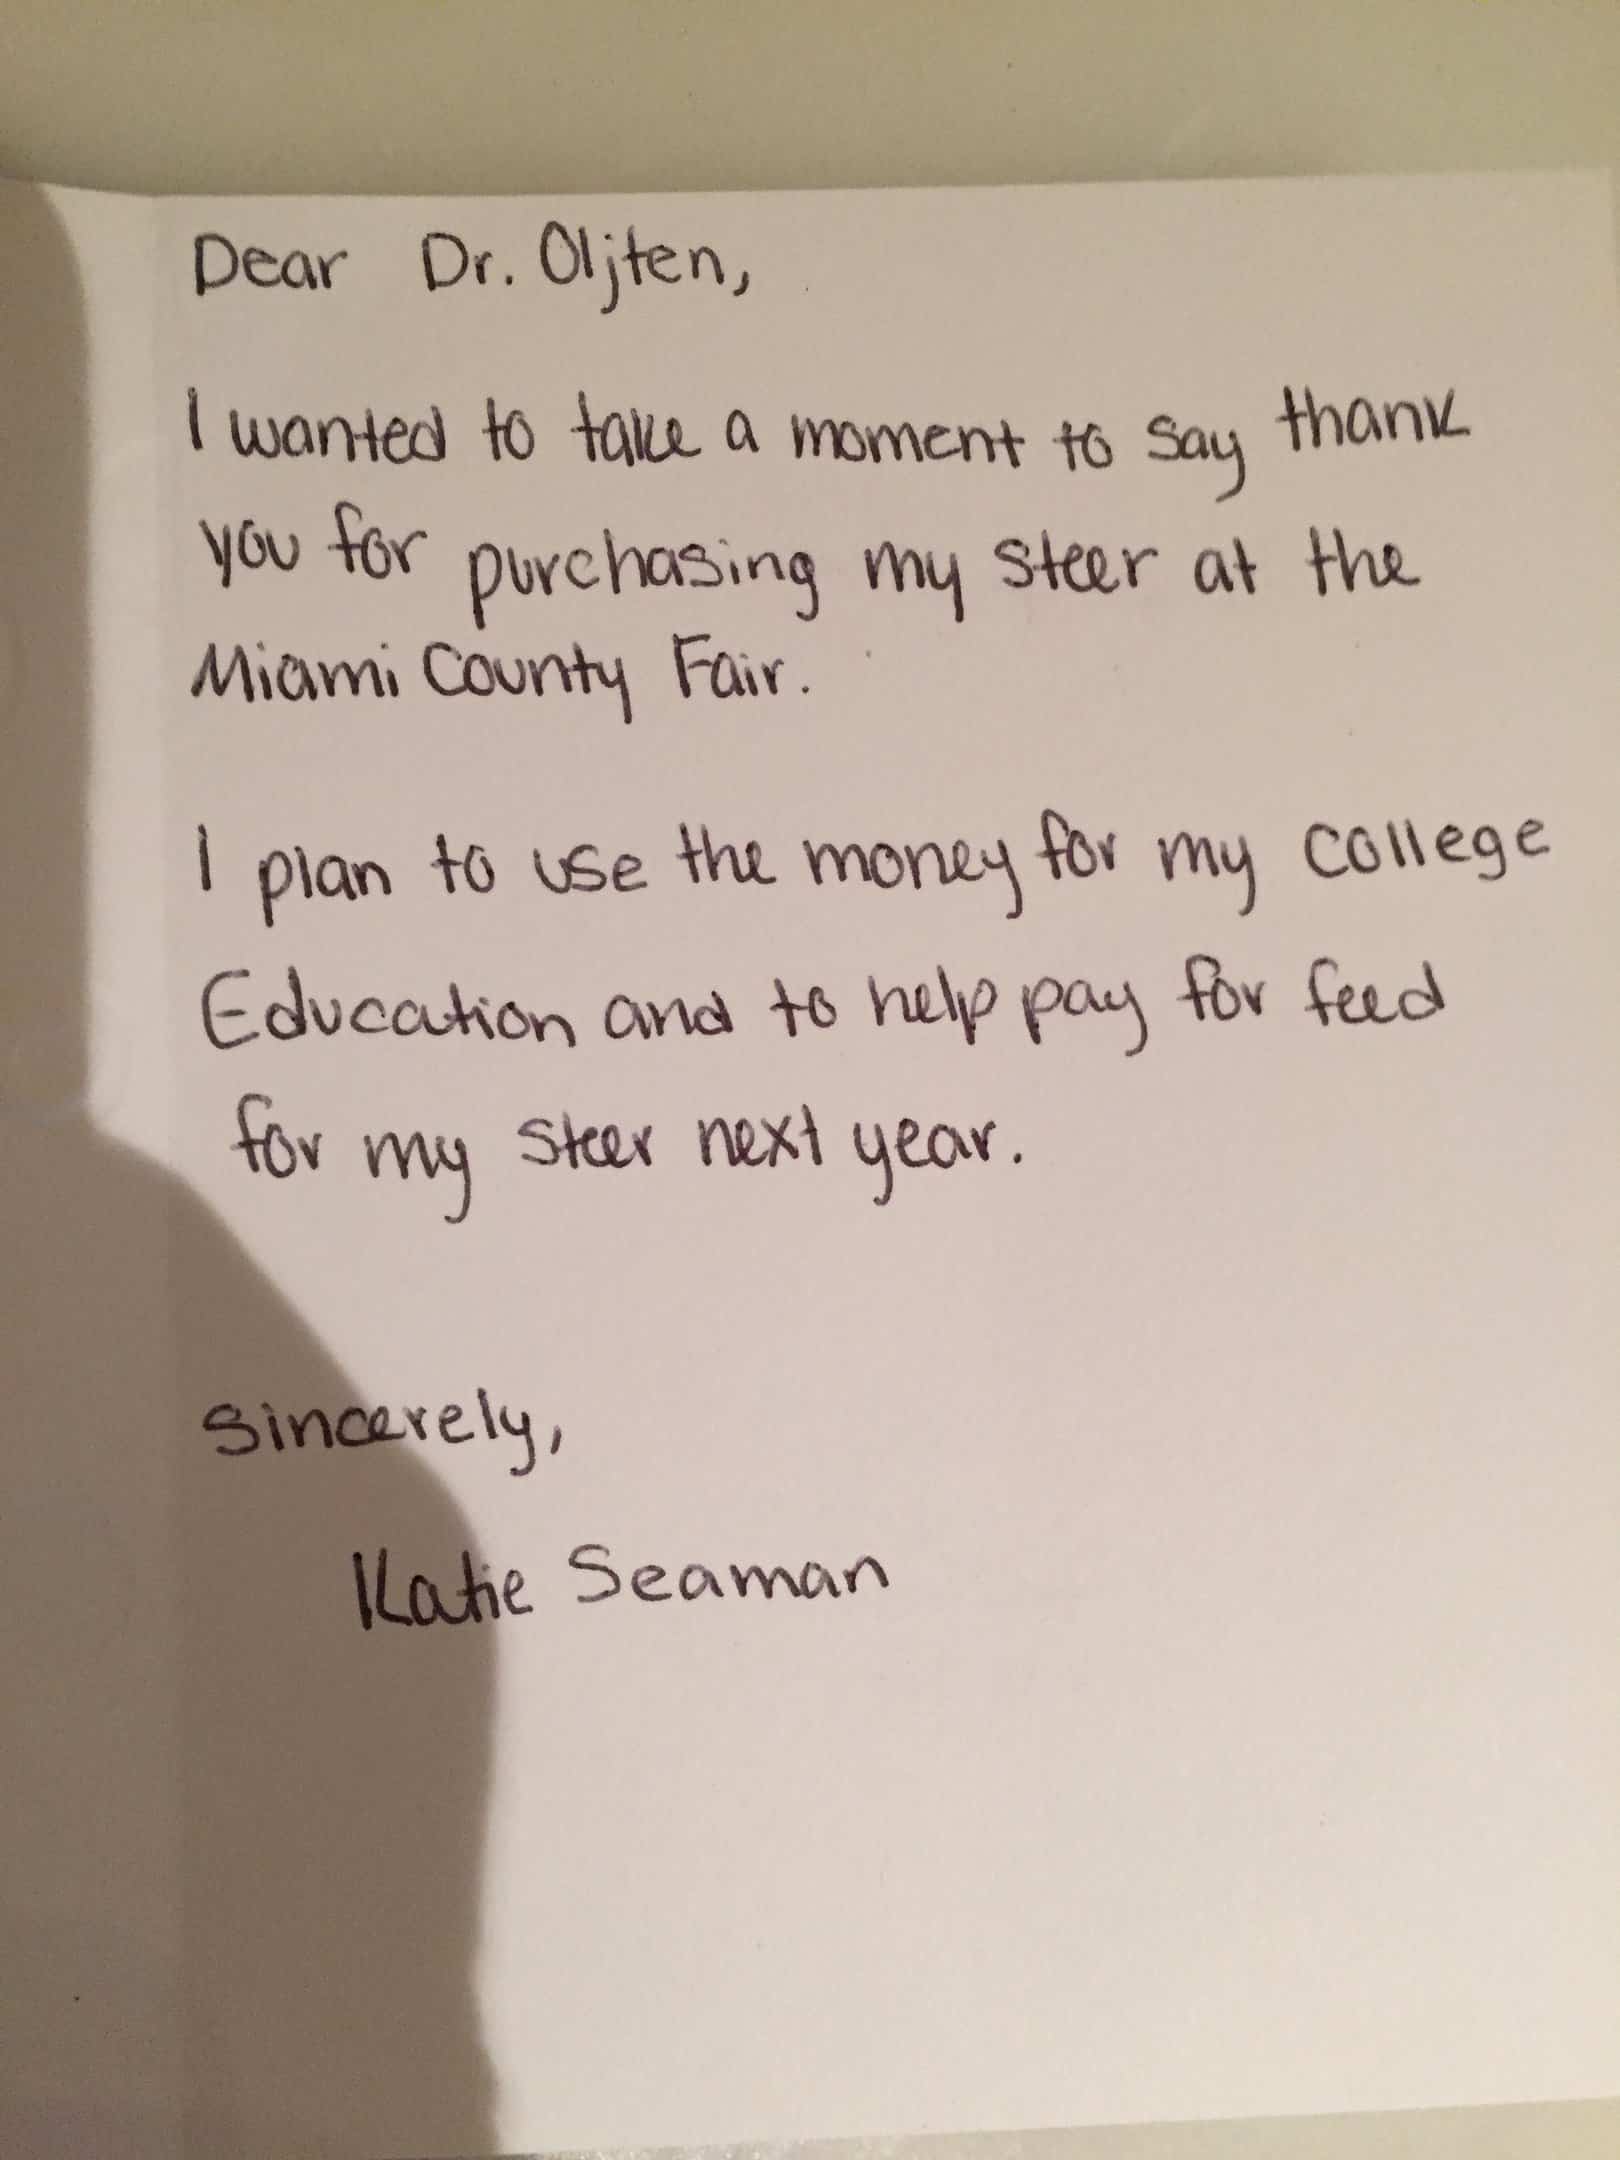 Dear Dr. Oljten,
I wanted to take a moment to say thank
you for purchasing my steer at the
Miami County Fair.
I plan to use the money for my college
Education and to help pay for feed
for my steer next year.
Sincerely,
Katie Seaman